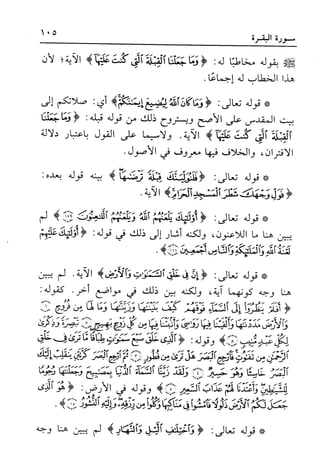 سورة البقرة ١٠٥
ﷺ بقوله مخاطبًا له: ﴿وَمَا جَعَلْنَا الْقِبْلَةَ الَّتِي كُنتَ عَلَيْهَا﴾ الآية؛ لأن
هذا الخطاب له إجماعًا.
* قوله تعالى: ﴿وَمَا كَانَ اللَّهُ لِيُضِيعَ إِيمَانَكُمْ﴾ أي: صلاتكم إلى
بيت المقدس على الأصح ويستروح ذلك من قوله قبله: ﴿وَمَا جَعَلْنَا
الْقِبْلَةَ الَّتِي كُنتَ عَلَيْهَا﴾ الآية. ولاسيما على القول باعتبار دلالة
الاقتران، والخلاف فيها معروف في الأصول.
* قوله تعالى: ﴿فَلَنُوَلِّيَنَّكَ قِبْلَةً تَرْضَاهَا﴾ بينه قوله بعده:
﴿فَوَلِّ وَجْهَكَ شَطْرَ الْمَسْجِدِ الْحَرَامِ﴾ الآية.
* قوله تعالى: ﴿أُولَٰئِكَ يَلْعَنُهُمُ اللَّهُ وَيَلْعَنُهُمُ اللَّاعِنُونَ ١٥٩﴾ لم
يبين هنا ما اللاعنون، ولكنه أشار إلى ذلك في قوله: ﴿أُولَٰئِكَ عَلَيْهِمْ
لَعْنَةُ اللَّهِ وَالْمَلَائِكَةِ وَالنَّاسِ أَجْمَعِينَ ١٦١﴾.
* قوله تعالى: ﴿إِنَّ فِي خَلْقِ السَّمَاوَاتِ وَالْأَرْضِ﴾ الآية. لم يبين
هنا وجه كونهما آية، ولكنه بين ذلك في مواضع أخر. كقوله:
﴿أَفَلَمْ يَنظُرُوا إِلَى السَّمَاءِ فَوْقَهُمْ كَيْفَ بَنَيْنَاهَا وَزَيَّنَّاهَا وَمَا لَهَا مِن فُرُوجٍ ٦
وَالْأَرْضَ مَدَدْنَاهَا وَأَلْقَيْنَا فِيهَا رَوَاسِيَ وَأَنبَتْنَا فِيهَا مِن كُلِّ زَوْجٍ بَهِيجٍ ٧ تَبْصِرَةً وَذِكْرَىٰ
لِكُلِّ عَبْدٍ مُّنِيبٍ ٨﴾ وقوله: ﴿الَّذِي خَلَقَ سَبْعَ سَمَاوَاتٍ طِبَاقًا مَّا تَرَىٰ فِي خَلْقِ
الرَّحْمَٰنِ مِن تَفَاوُتٍ فَارْجِعِ الْبَصَرَ هَلْ تَرَىٰ مِن فُطُورٍ ٣ ثُمَّ ارْجِعِ الْبَصَرَ كَرَّتَيْنِ يَنقَلِبْ إِلَيْكَ
الْبَصَرُ خَاسِئًا وَهُوَ حَسِيرٌ ٤ وَلَقَدْ زَيَّنَّا السَّمَاءَ الدُّنْيَا بِمَصَابِيحَ وَجَعَلْنَاهَا رُجُومًا
لِّلشَّيَاطِينِ وَأَعْتَدْنَا لَهُمْ عَذَابَ السَّعِيرِ ٥﴾ وقوله في الأرض: ﴿هُوَ الَّذِي
جَعَلَ لَكُمُ الْأَرْضَ ذَلُولًا فَامْشُوا فِي مَنَاكِبِهَا وَكُلُوا مِن رِّزْقِهِ وَإِلَيْهِ النُّشُورُ ١٥﴾.
* قوله تعالى: ﴿وَاخْتِلَافِ اللَّيْلِ وَالنَّهَارِ﴾ لم يبين هنا وجه